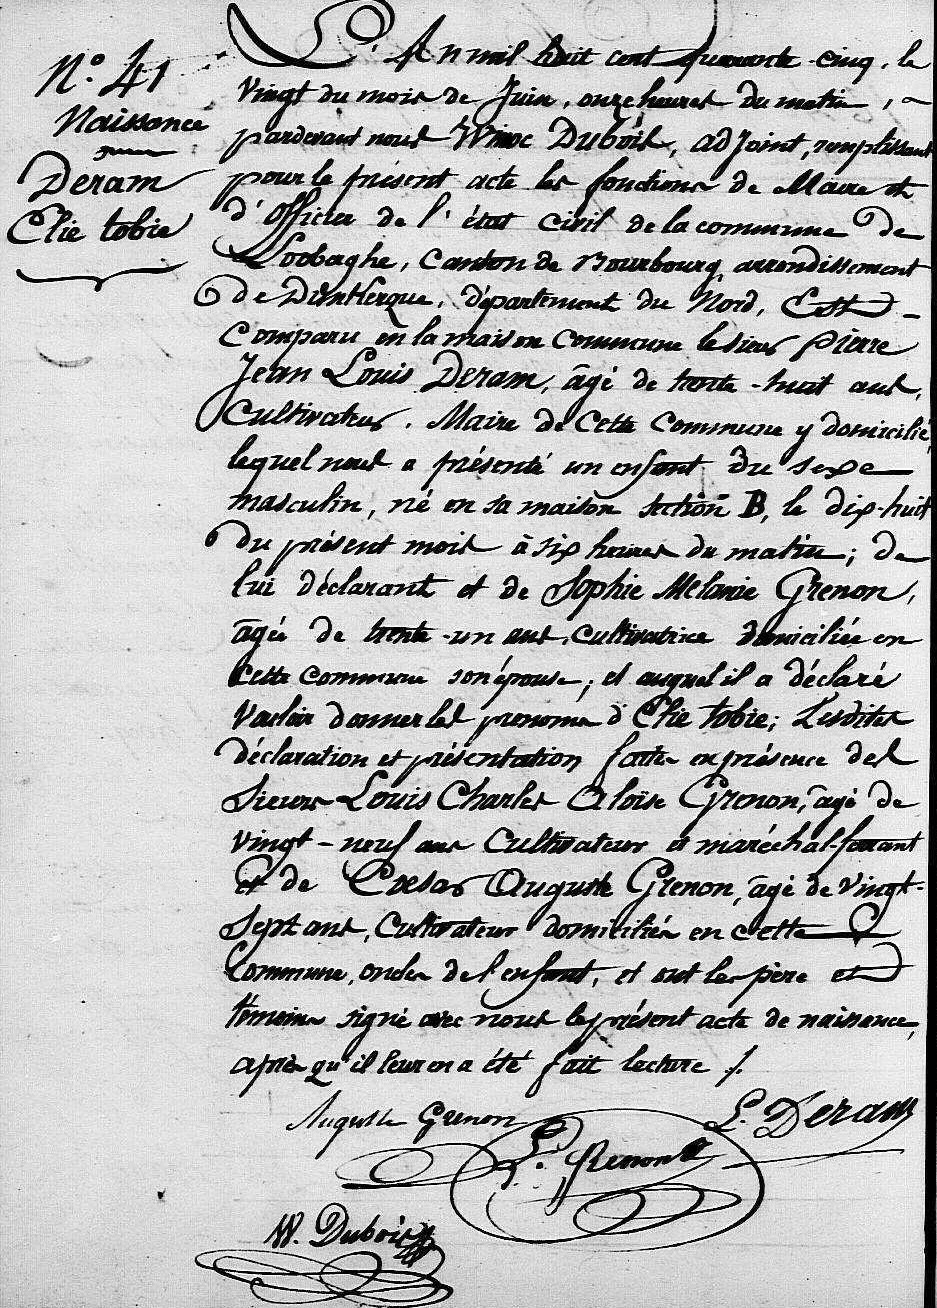 N.° 41
Naissance
Deram
Elie tobie
L'An mil huit cent quarante-cinq, le
vingt du mois de Juin, onze heures du matin,
pardevant nous Winoc Dubois, adjoint, remplissant
pour le présent acte les fonctions de Maire et
d'officier de l'état civil de la commune de
Looberghe, Canton de Bourbourg, arrondissement
de Dunkerque, département du Nord, Est
Comparu en la maison commune le sieur Pierre
Jean Louis Deram, âgé de trente-huit ans,
Cultivateur, Maire de Cette Commune y domicilié,
lequel nous a présenté un enfant du sexe
masculin, né en sa maison section B, le dix-huit
du présent mois à six heures du matin; de
lui déclarant et de Sophie Melanie Grenon,
âgée de trente-un ans, cultivatrice domiciliée en
cette commune son épouse; et auquel il a déclaré
vouloir donner les prenoms d'Elie tobie; Lesdites
déclaration et présentation faites en présence des
Sieurs Louis Charles Aloïse Grenon, âgé de
vingt-neuf ans Cultivateur et maréchal-ferrant
et de Cæsar Auguste Grenon, âgé de vingt-
sept ans, Cultivateur domiciliés en cette
Commune, oncles de l'enfant, et ont les père et
témoins signé avec nous le présent acte de naissance,
après qu'il leur en a été fait lecture /.
Auguste Grenon
L. Deram
L. Grenon
W. Dubois